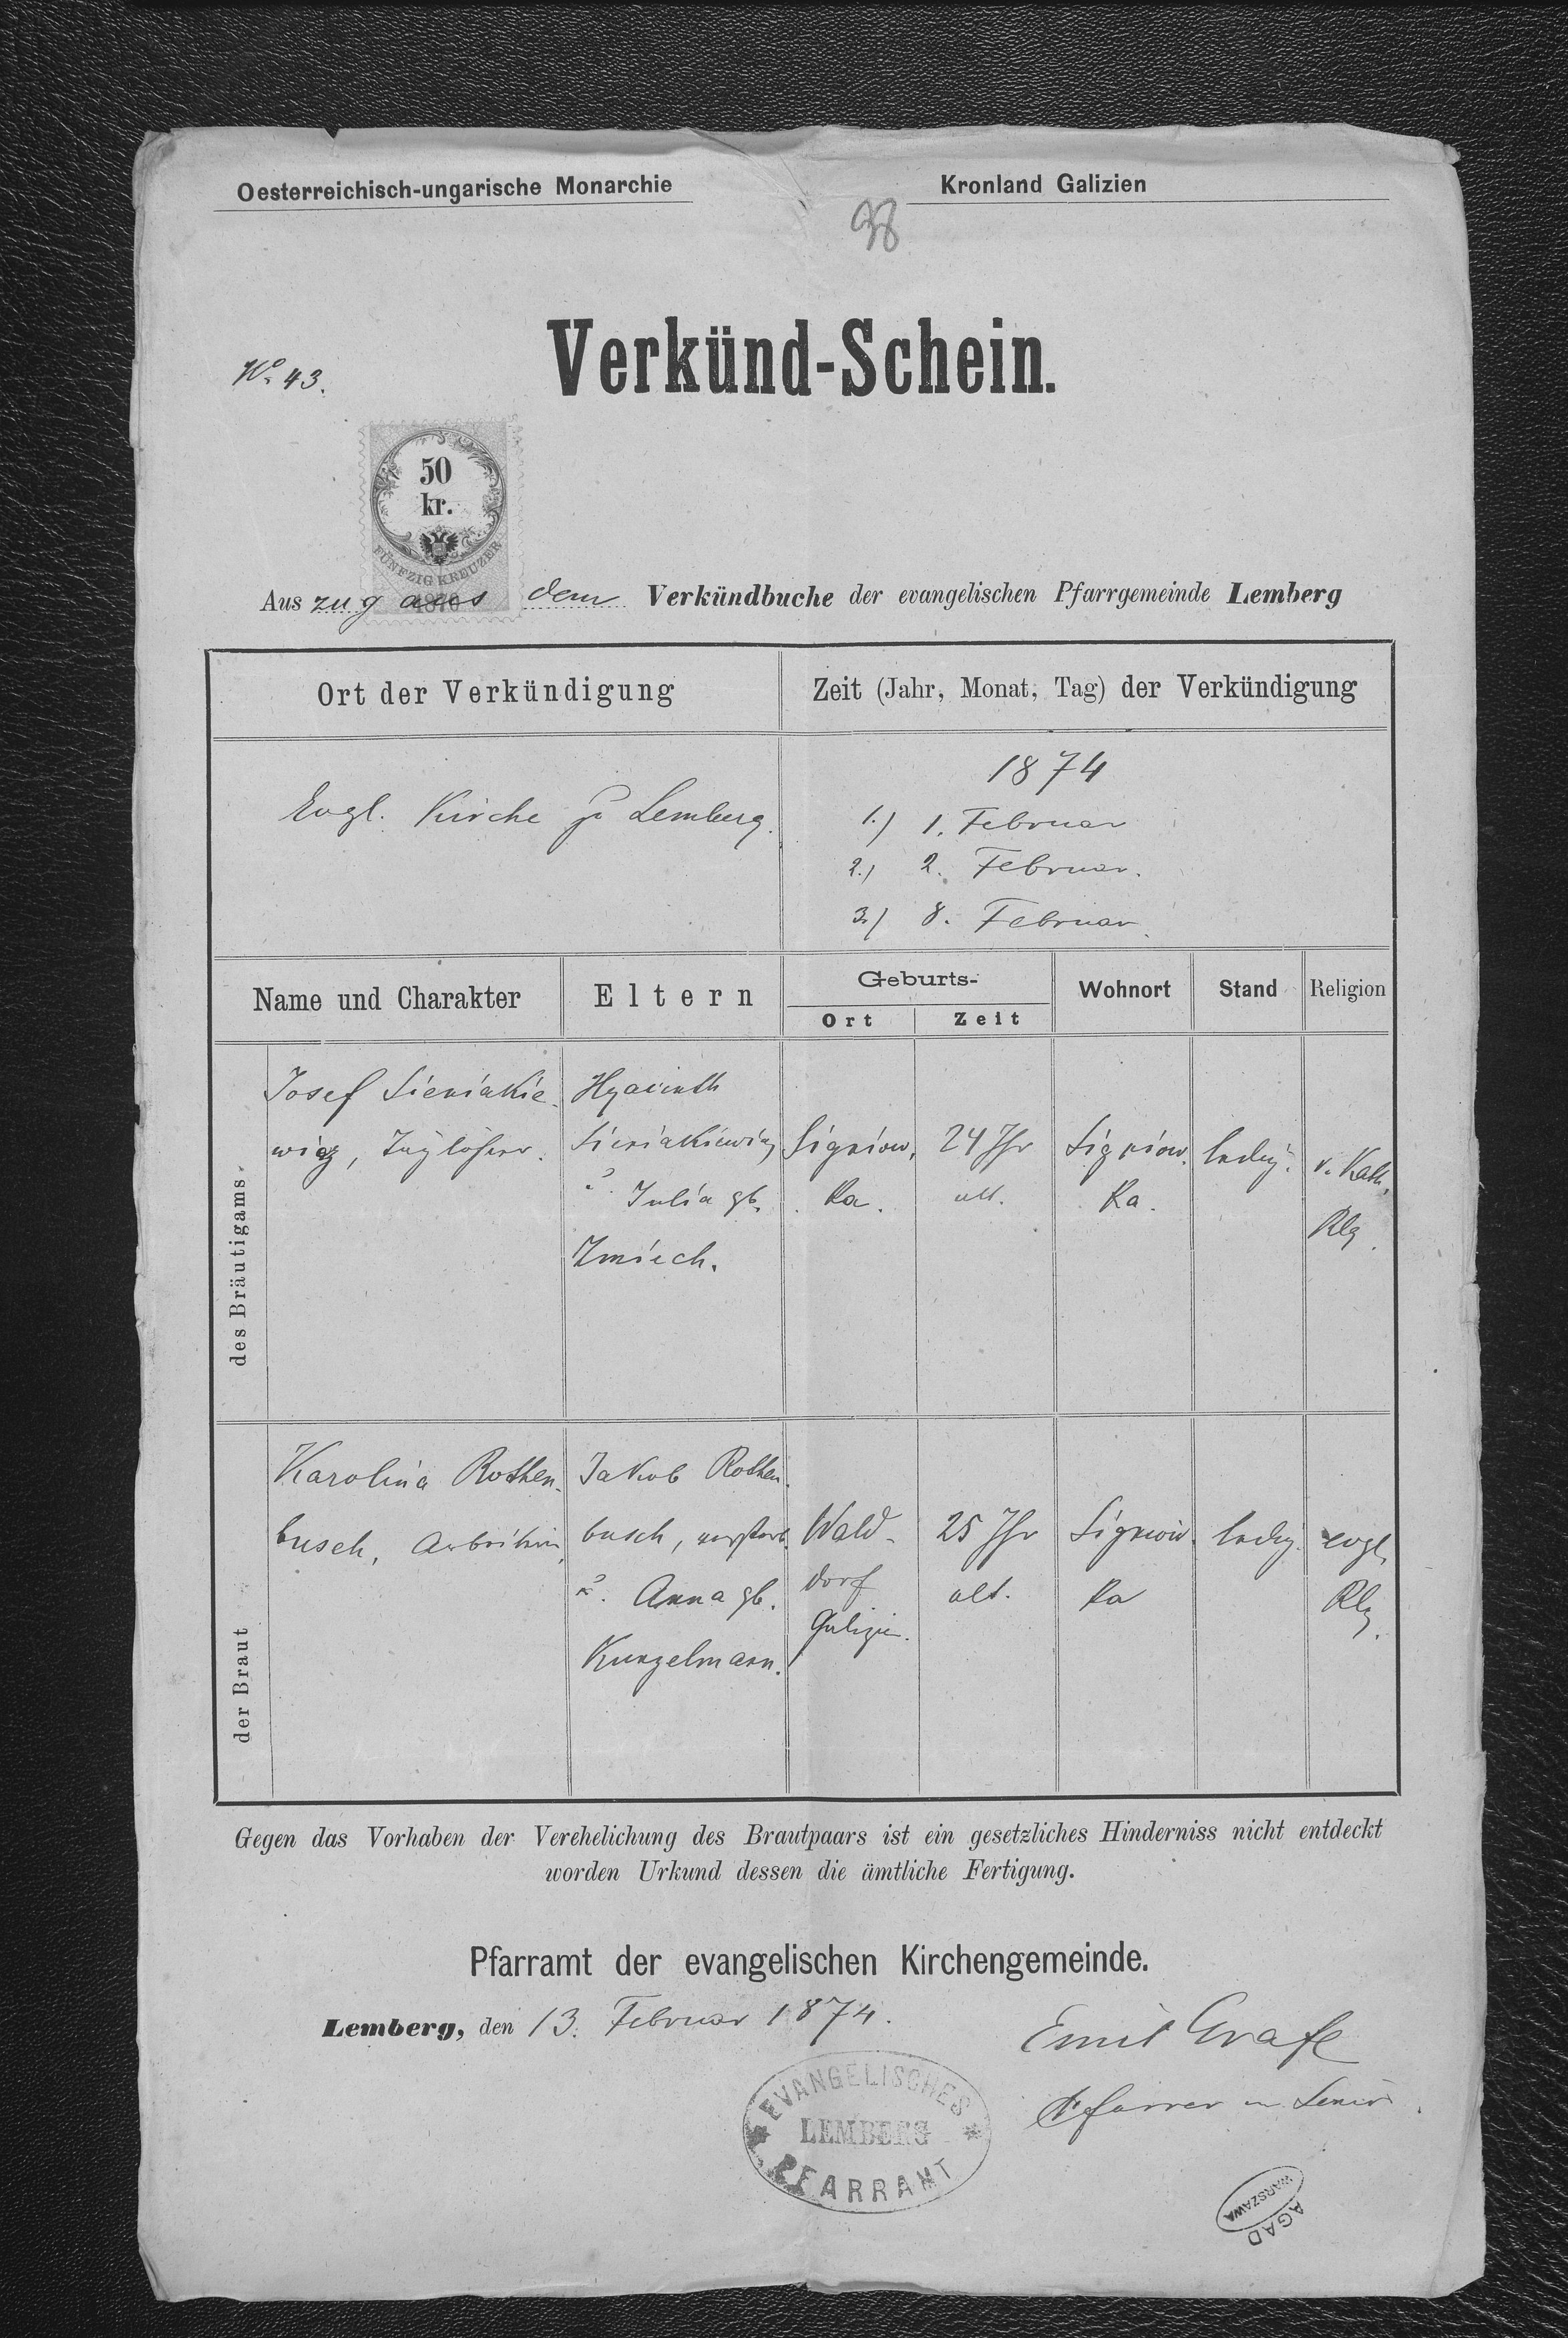 Oesterreichisch-ungarische Monarchie
Kronland Galizien
38
No. 43.
Verkünd-Schein.
50
kr.
FÜNFZIG KREUZER
1870
Auszug aus dem Verkündbuche der evangelischen Pfarrgemeinde Lemberg
Ort der Verkündigung
Zeit (Jahr, Monat, Tag) der Verkündigung
Evgl. Kirche zu Lemberg.
1874
1.) 1. Februar
2.) 2. Februar.
3.) 8. Februar.
Name und Charakter
Eltern
Geburts-
Ort
Zeit
Wohnort
Stand
Religion
des Bräutigams
Josef Sieniakie-
wicz, Taglöhner.
Hyacinth
Sieniakiewicz
u. Julia gb.
Zmiech.
Signiow,
Ka.
24 Jhr
alt.
Signiow.
Ka.
ledig.
r. Kath.
Rlg.
der Braut
Karolina Rothen-
busch, Arbeiterin,
Jakob Rothen-
busch, verstorb.
u. Anna gb.
Kunzelmann.
Wald-
dorf
Galizien.
25 Jhr
alt.
Signiow.
Ka
ledig.
evgl.
Rlg.
Gegen das Vorhaben der Verehelichung des Brautpaars ist ein gesetzliches Hinderniss nicht entdeckt
worden Urkund dessen die ämtliche Fertigung.
Pfarramt der evangelischen Kirchengemeinde.
Lemberg, den 13. Februar 1874.
Emil Grafe
Pfarrer u. Senior.
EVANGELISCHES
LEMBERG
PFARRAMT
AGAD
WARSZAWA